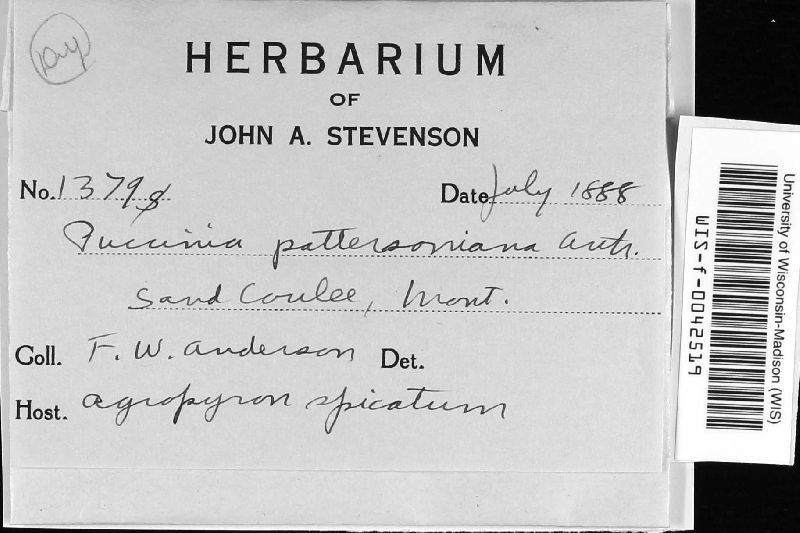 HERBARIUM
OF
JOHN A. STEVENSON
No. 1379 Date July 1888
Puccinia pattersoniana Arth.
Sand Coulee, Mont.
Coll. F. W. Anderson Det.
Host. Agropyron spicatum
University of Wisconsin-Madison (WIS)
WIS-f-0042519